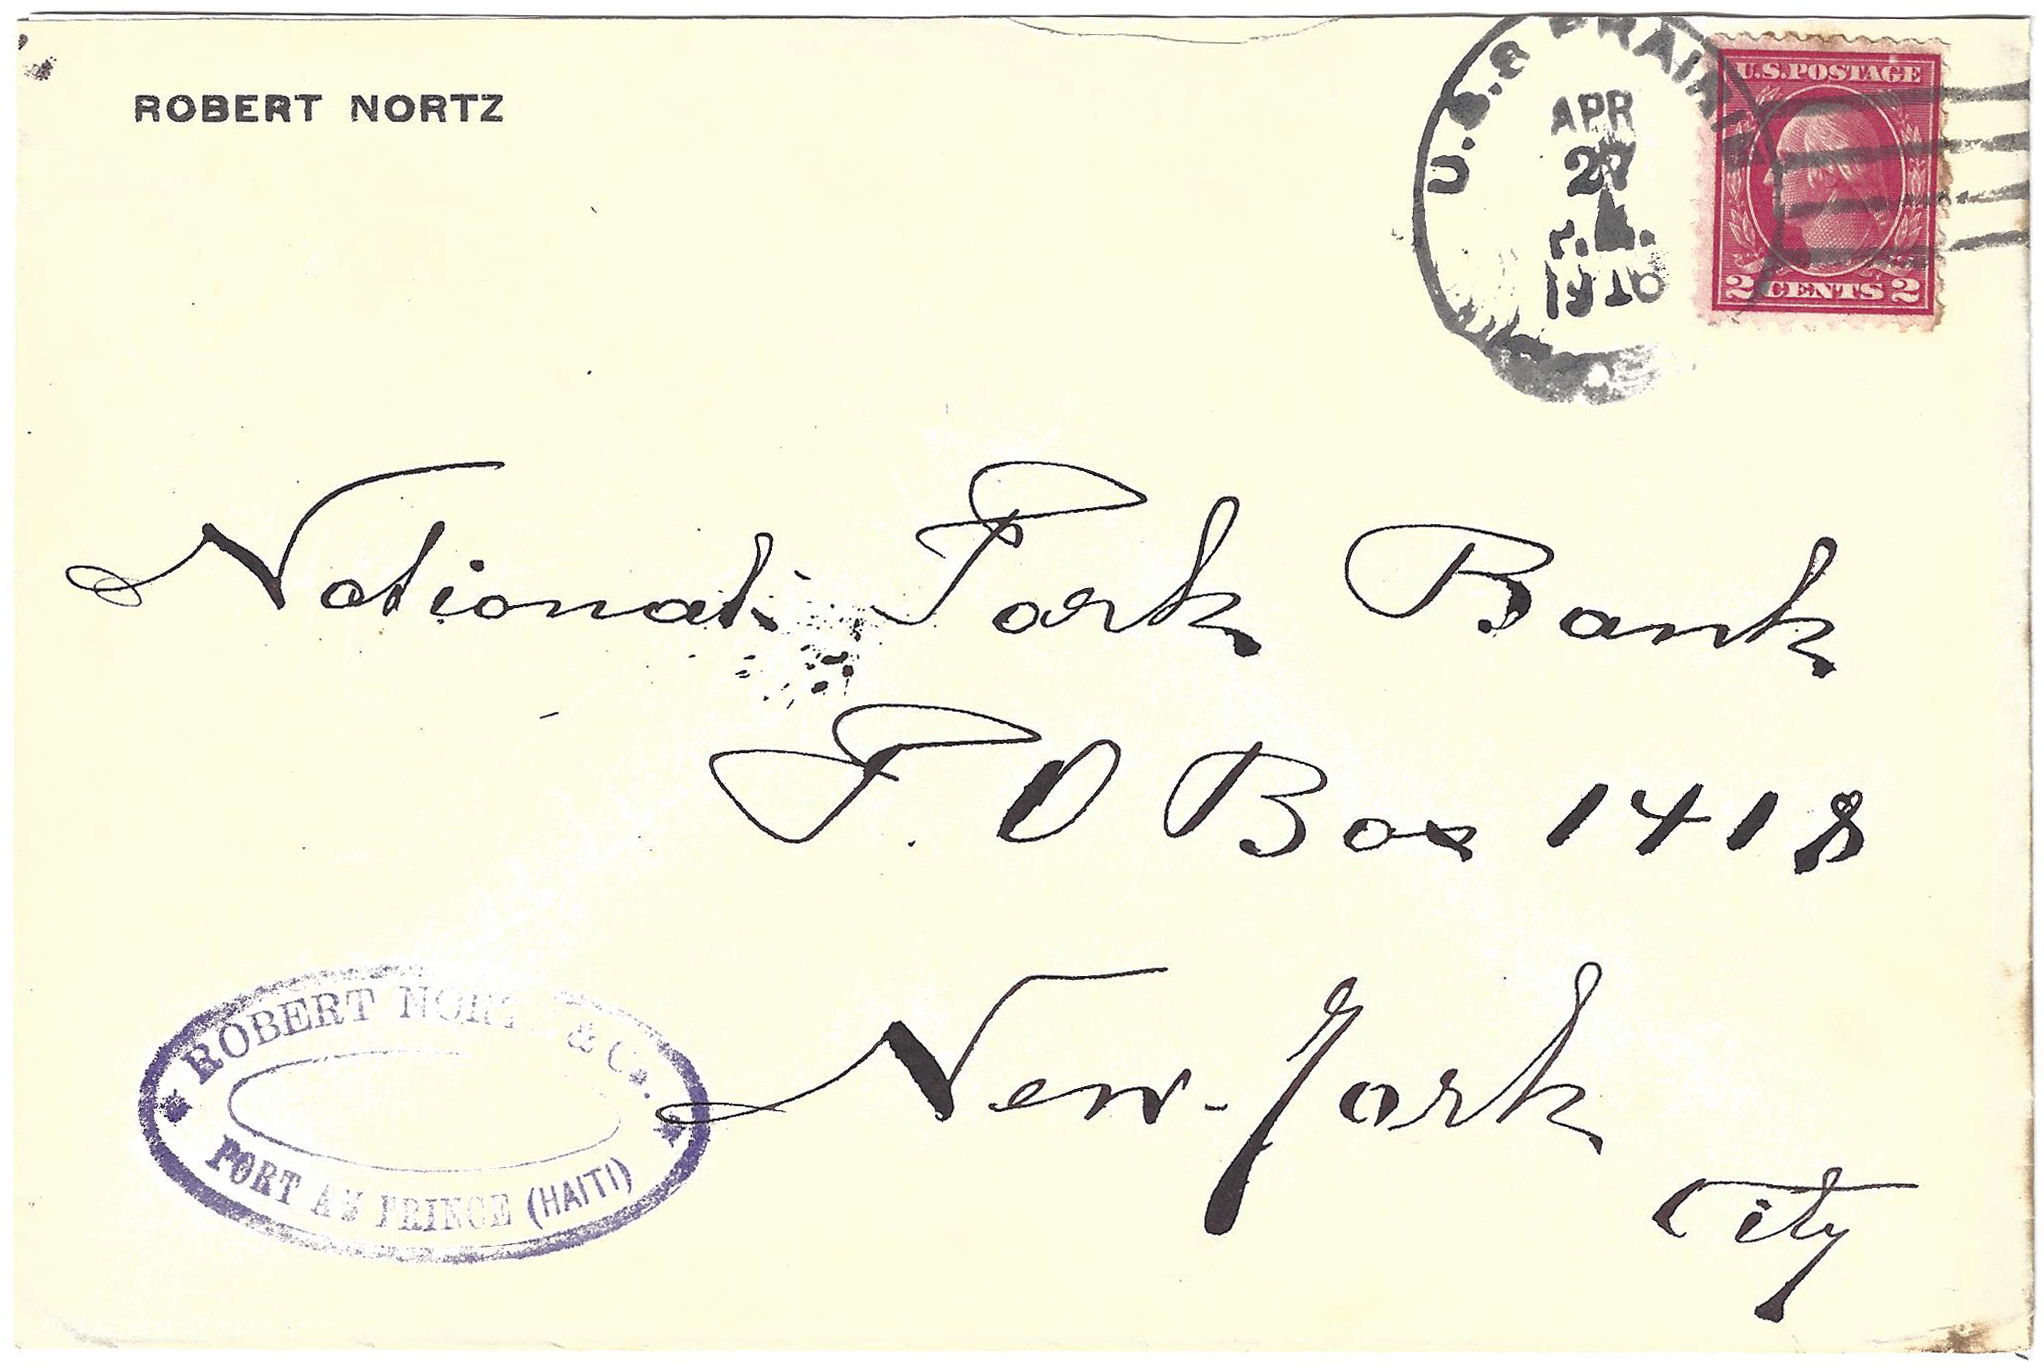 ROBERT NORTZ
U.S.S PRAIRIE
APR
27
U.S.POSTAGE
2 CENTS 2
National Park Bank
P. O Box 1418
New-York
City
ROBERT NORTZ & Co.
PORT AU PRINCE (HAITI)